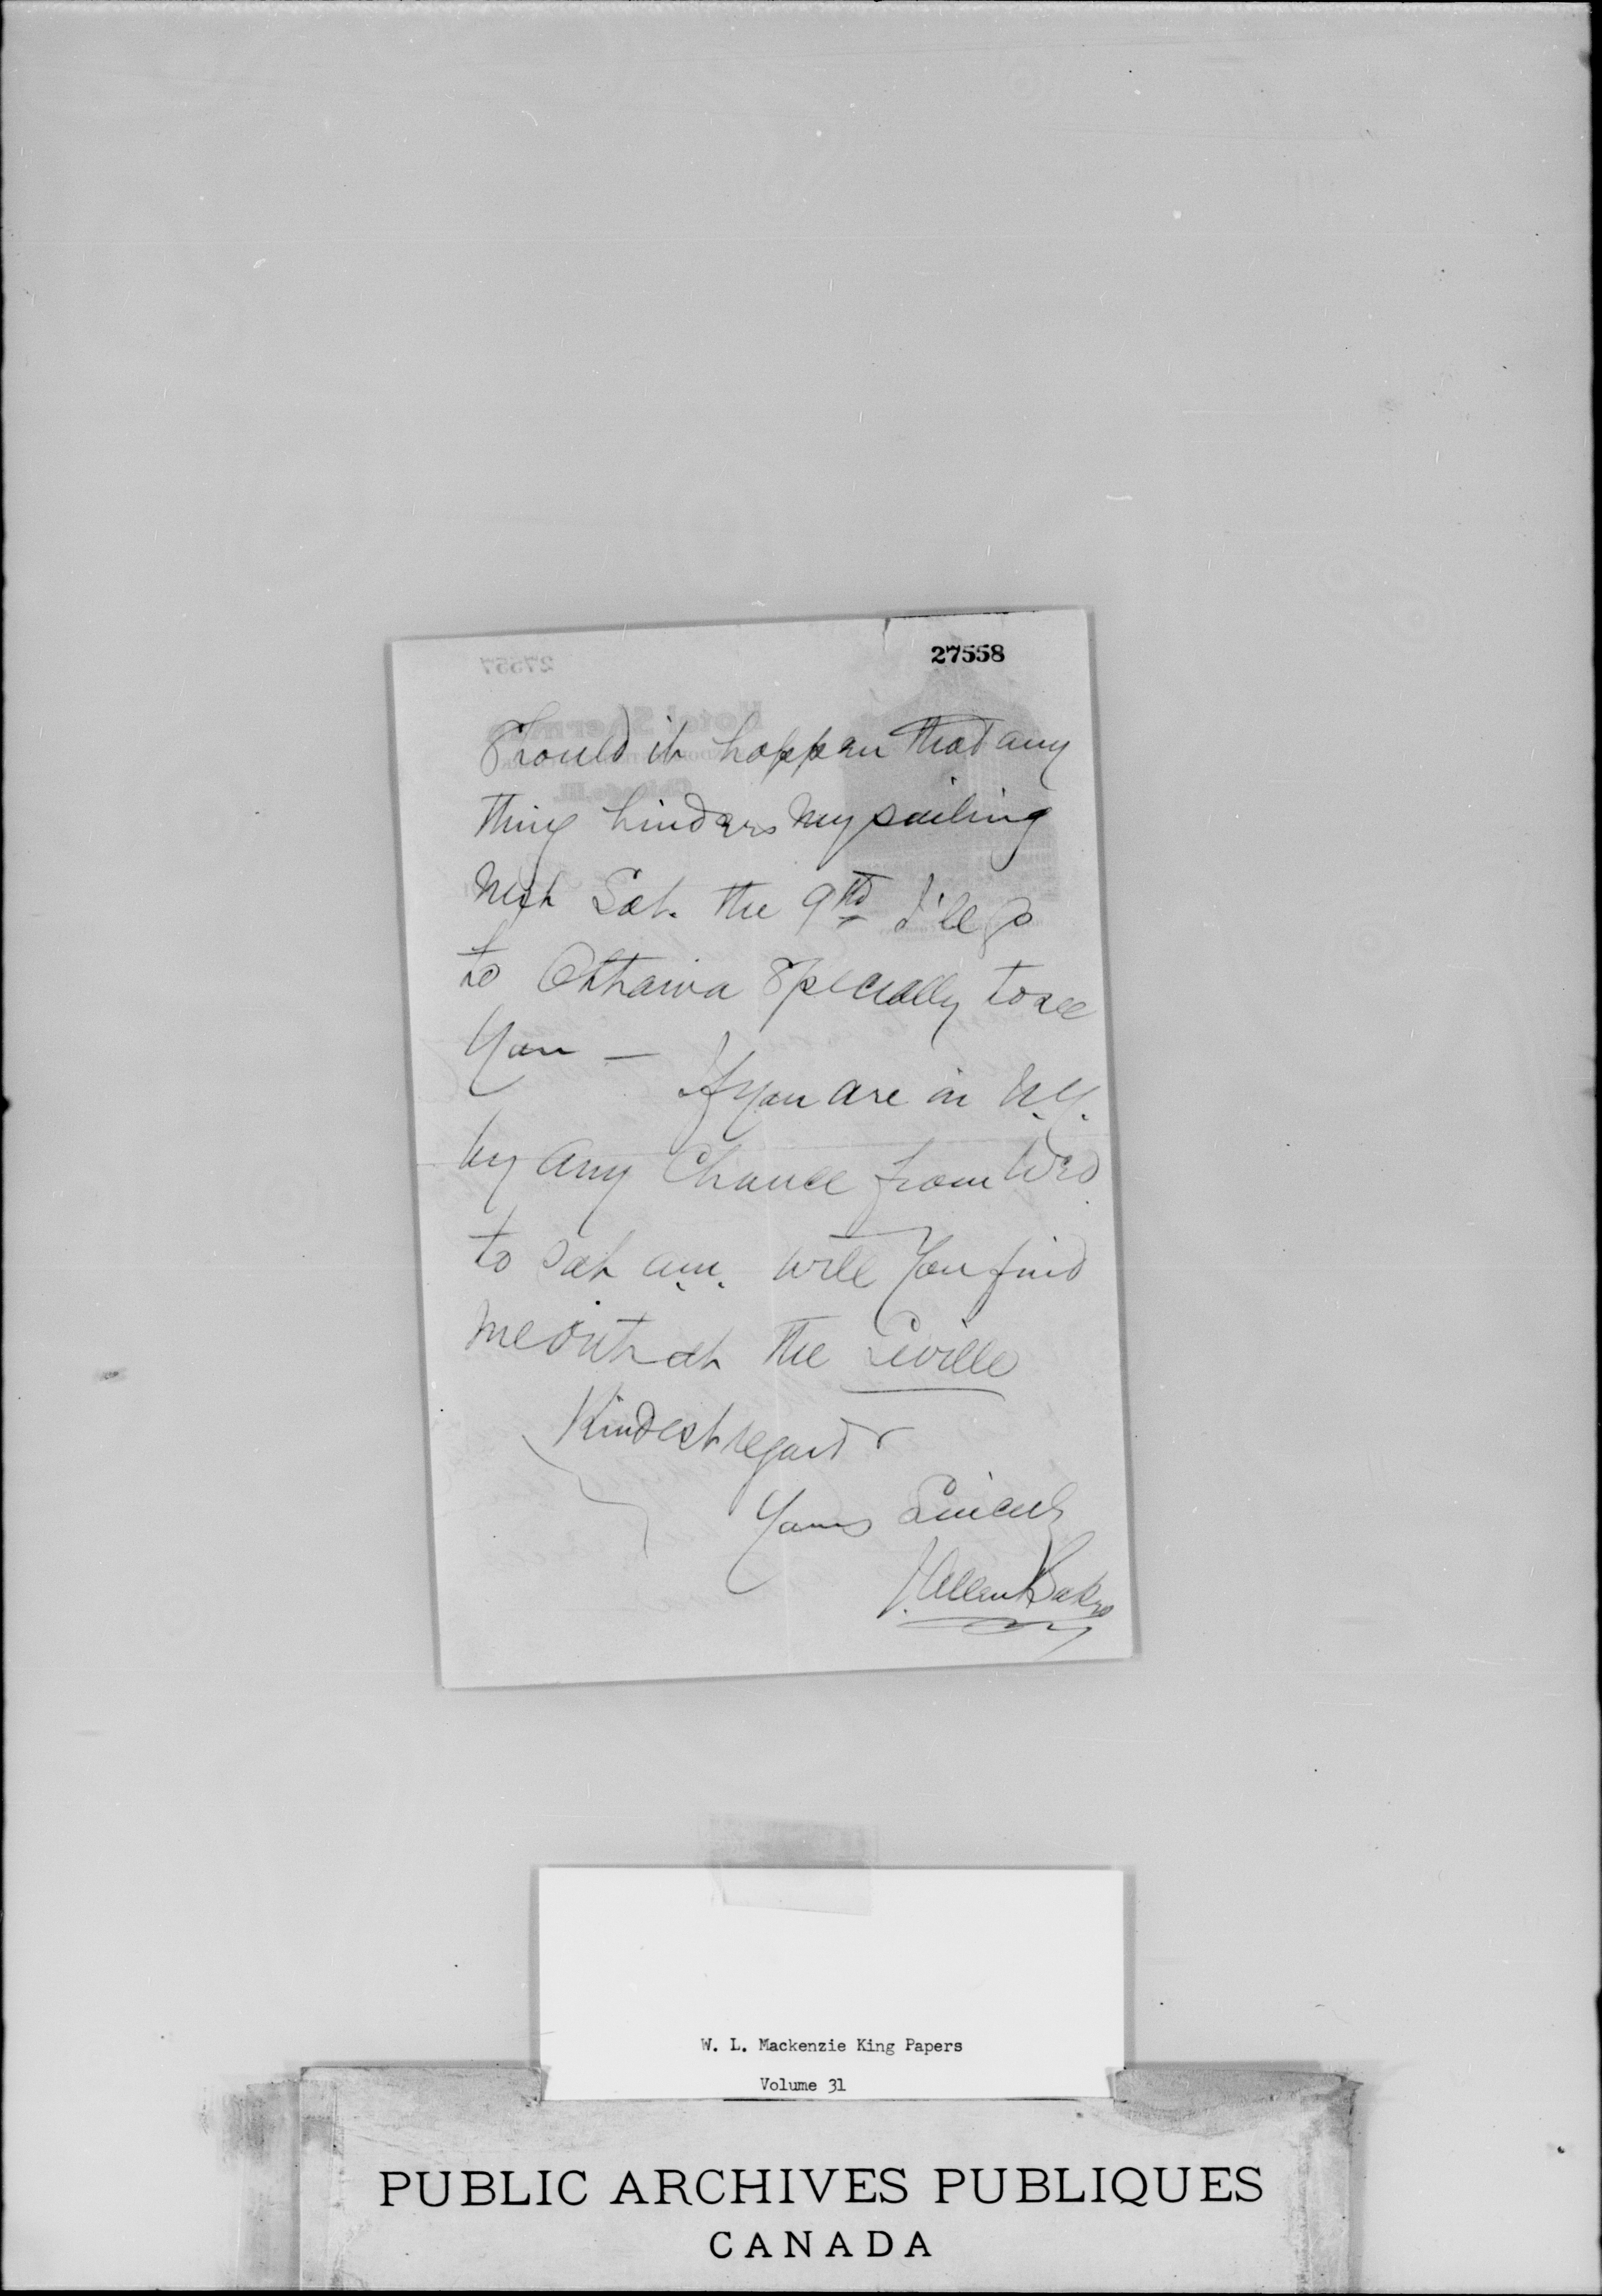 27558
Should it happen that any
thing hinders my sailing
next Sat. the 9th I'll go
to Ottawa specially to see
you —
If you are in N.Y.
by any chance from Wed
to Sat a.m. will you find
me out at the Seville
Kindest regards
Yours Sincerely
J. Allen Baker
W. L. Mackenzie King Papers
Volume 31
PUBLIC ARCHIVES PUBLIQUES
CANADA